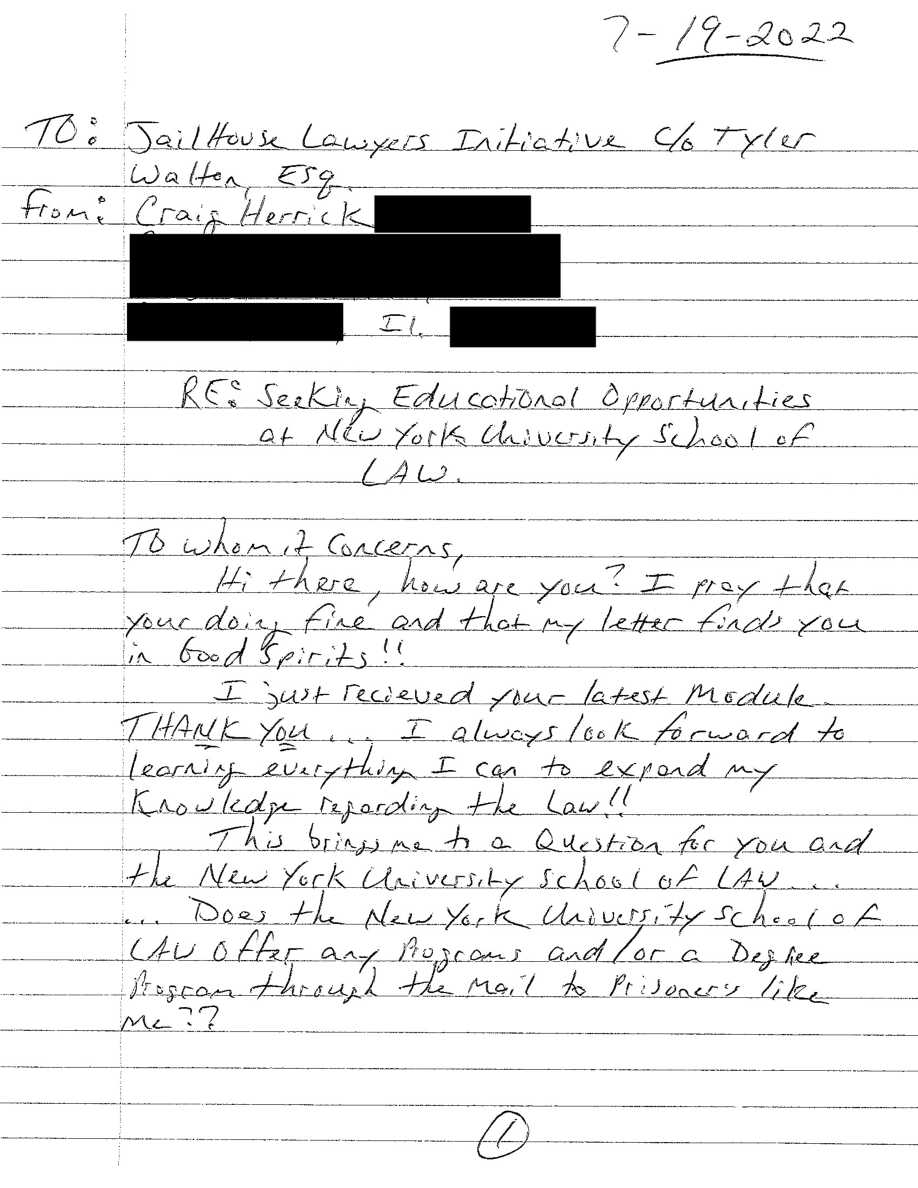 7-19-2022
TO: JailHouse Lawyers Initiative C/o Tyler
Walton, Esq.
from: Craig Herrick
Il.
RE: Seeking Educational Opportunities
at New York University School of
LAW.
To whom it Concerns,
Hi there, how are you? I pray that
your doing fine and that my letter finds you
in Good Spirits!!
I just recieved your latest Module.
THANK YOU ... I always look forward to
learning everything I can to expand my
Knowledge regarding the Law!!
This brings me to a Question for you and
the New York University School of LAW ...
... Does the New York University School of
LAW Offer any Programs and/or a Degree
Program through the Mail to Prisoners like
Me??
1